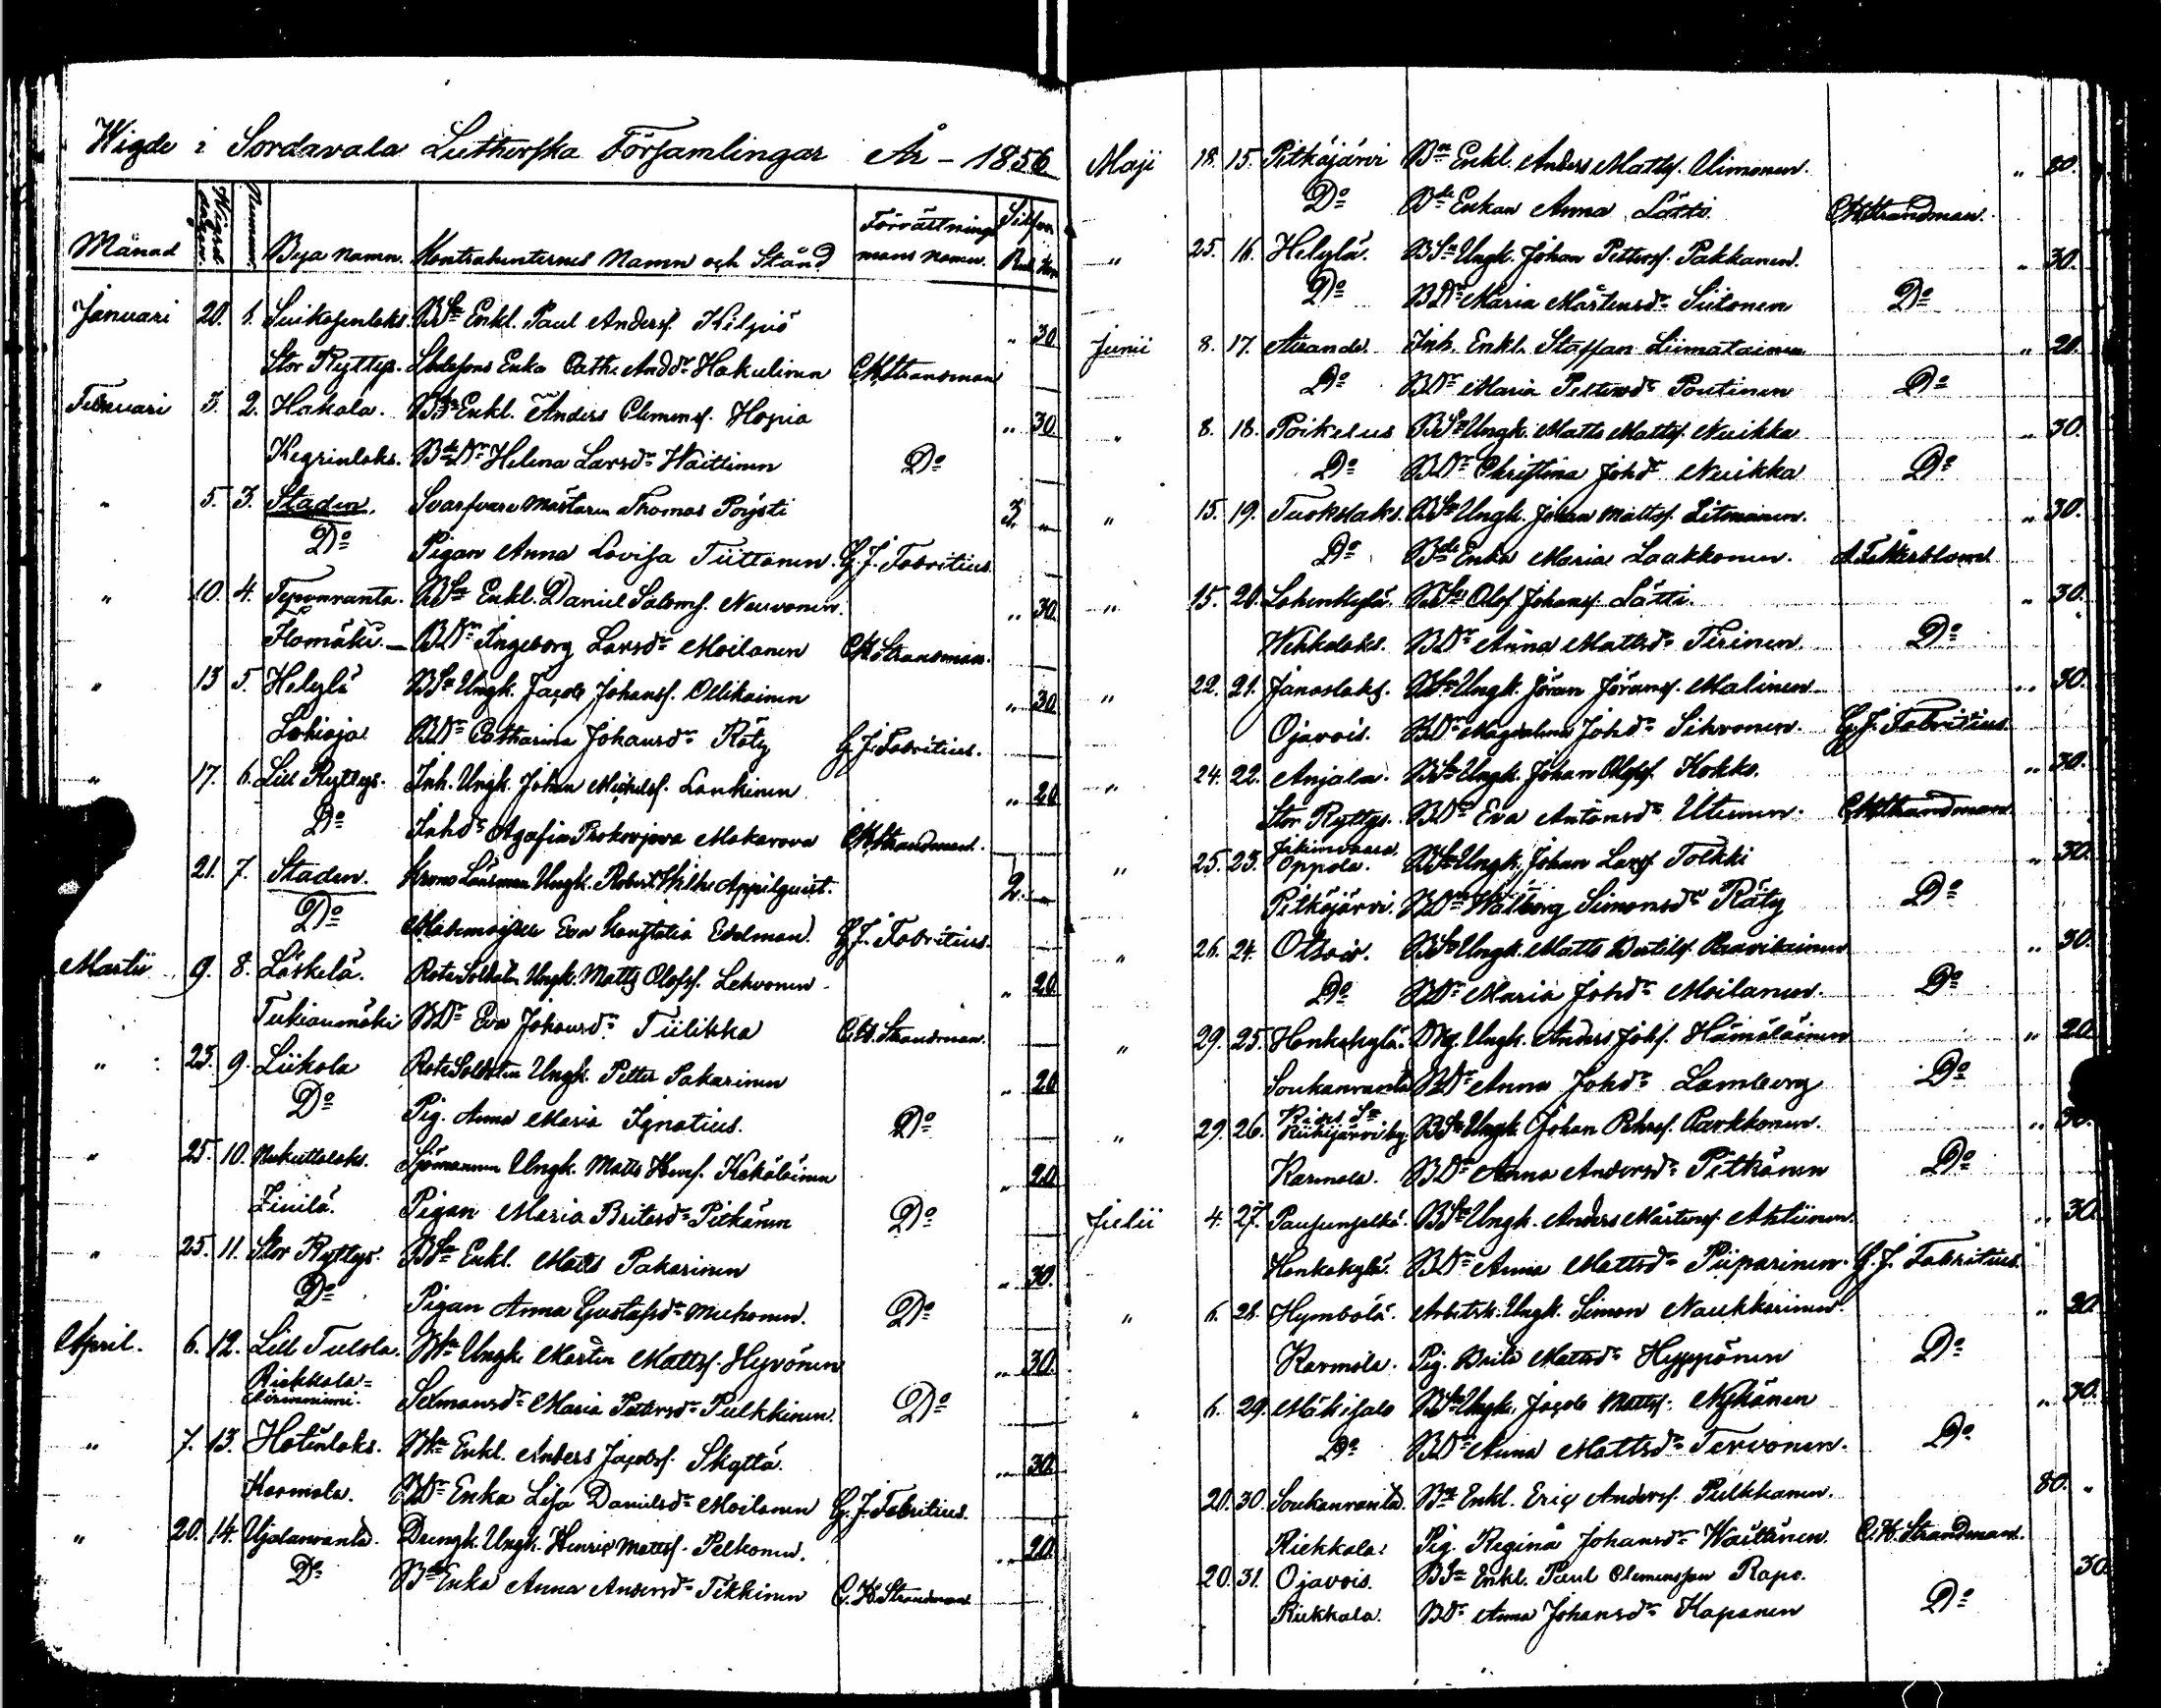 Wigde i Sordavala Lutherska Församlingar År - 1856
Månad Wigsel dagen. Nummer. Bya namn. Kontrahenternes Namn och Stånd Förrättnings mans namn. Silfver Rub. Kop.
Januari 20. 1. Suikasenlaks. BSn Enkl. Paul Andersf. Hilpiö „ 30
Stor Ryttys. Enka Cath. Anddr Hakulinen C.H. Strandman
Februari 3. 2. Hakala. Enkl. Anders Clemensf. Hopia „ 30
Kegrinlaks. Helena Larsdr Waittinen Do
„ 5. 3. Staden. Svarfvare Mästaren Thomas Pöysti 3. „
Do Pigan Anna Lovisa Tiittanen. G. J. Fabritius.
„ 10. 4. Teponranta. BSn Enkl. Daniel Salomsf. Neuvonen. „ 30.
Ilomäki. BDr Ingeborg Larsdr Moilanen C.H. Strandman.
„ 13 5. Helylä BSn Ungk. Jacob Johansf. Ollikainen „ 30
Lohioja BDr Catharina Johansdr Räty G. J. Fabritius.
„ 17. 6. Lill Ryttys. Inh. Ungk. Johan Michelsf. Lankinen „ 20
Do Inhdr Agafia Prokovjeva Makarova C.H. Strandman.
21. 7. Staden. Krono Länsman Ungk. Robert Wilh. Appelquist. 2. „
Do Mademoiselle Eva Constatia Edelman. G. J. Fabritius.
Martii 9. 8. Läskelä. Rote Soldaten Ungk. Matts Olofsf. Lehvonen „ 20
Tukianmäki BDr Eva Johansdr Tiilikka C.H. Strandman.
„ 23. 9. Liikola Rote Soldaten Ungk. Petter Pakarinen „ 20
Do Pig. Anna Maria Ignatius. Do
„ 25. 10. Nukuttalaks. Sjömannen Ungk. Matts Hensf. Kokoläinen „ 20
Pigan Maria Britasdr Pitkänen Do
„ 25. 11. Stor Ryttys. BSn Enkl. Matts Pakarinen „ 30.
Do Pigan Anna Gustafsdr Muhonen. Do
April. 6. 12. Lill Tulola. Bn Ungk. Mårten Mattsf. Hyvönen „ 30.
Riekkala= Nirinniemi. Sexmansdr Maria Pettersdr Pulkkinen. Do
„ 7. 13. Hotinlaks. Bn Enkl. Anders Jacobsf. Skyttä. „ 30.
Karmala. BDr Enka Lisa Danielsdr Moilanen G. J. Fabritius.
„ 20. 14. Ujalanranta. Drengk. Ungk. Henric Mattsf. Pelkonen. „ 20.
Do Enka Anna Andersdr Tikkinen C. H. Strandman
Maji 18. 15. Pitkäjärvi Bn Enkl. Anders Mattsf. Uimonen. „ 80.
Do Enkan Anna Lätti. C.H. Strandman.
„ 25. 16. Helylä. BSn Ungk. Johan Pettersf. Pakkanen. „ 30.
Do BDr Maria Mårtensdr Siitonen Do
Junii 8. 17. Airanda. Inh. Enkl. Staffan Liimatainen „ 20.
Do BDr Maria Pettersdr Pontinen Do
„ 8. 18. Poikelus BSn Ungk. Matts Mattsf. Nuikka „ 30.
Do BDr Christina Johdr Nuikka Do
„ 15. 19. Tuokslaks. BSn Ungk. Johan Mattsf. Litmanen. „ 30.
Do Enka Maria Laakkonen.
„ 15. 20. Lahenkylä. BSn Olof Johansf. Lätti. „ 30.
Wehkalaks. BDr Anna Mattsdr Tirinen. Do
„ 22. 21. Janaslaks. BSn Ungk. Jöran Jöransf. Malinen „ 30.
Ojavois. BDr Magdalena Johdr Sihvonen. G. J. Fabritius.
„ 24. 22. Anjala. BSn Ungk. Johan Olofsf. Kokko. „ 30.
Stor Ryttys. BDr Eva Antonsdr Utunen. C.H. Strandman.
„ 25. 23. Jäkimvaara. Oppola. BSn Ungk. Johan Larsf. Tolkki „ 30.
Pitkäjärvi. BDr Walborg Simonsdr Räty Do
„ 26. 24. Otsois. BSn Ungk. Matts Bertilsf. Paavikainen „ 30.
Do BDr Maria Johdr Moilanen. Do
„ 29. 25. Honkakylä. Drg. Ungk. Anders Johsf. Hämäläinen „ 20.
Soukanranta BDr Anna Johdr Lamberg Do
„ 29. 26. BSn Ungk. Johan Parkkonen. „ 30.
Karmala. BDr Anna Andersdr Pitkänen Do
Julii 4. 27. Pausunselkä. BSn Ungk. Anders Mårtensf. Ahtiinen. „ 30.
Honkakylä. BDr Anna Mattsdr Piiparinen. G. J. Fabritius.
„ 6. 28. Hympölä. Arbetsk. Ungk. Simon Naukkarinen. „ 20.
Karmala. Pig. Brita Mattsdr Hyppönen Do
„ 6. 29. Mäkisalo BSn Ungk. Jacob Mattsf. Nykänen „ 30.
Do BDr Anna Mattsdr Tervonen. Do
20. 30. Soukanranta. Bn Enkl. Eric Andersf. Pulkkanen. 80. „
Riekkala. Pig. Regina Johansdr Wäittinen. C. H. Strandman.
20. 31. Ojavois. BSn Enkl. Paul Clemensson Rapo. 30.
Riekkala. BDr Anna Johansdr Kaponen Do